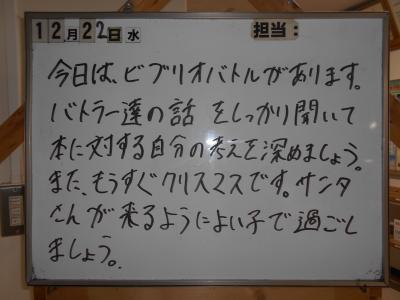 12月22日水 担当:
今日は、ビブリオバトルがあります。
バトラー達の話をしっかり聞いて
本に対する自分の考えを深めましょう。
また、もうすぐクリスマスです。サンタ
さんが来るようによい子で過ごし
ましょう。